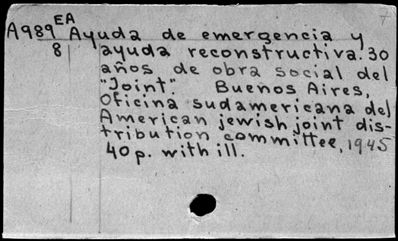 EA
A989 Ayuda de emergencia y
8 ayuda reconstructiva. 30
años de obra social del
"Joint". Buenos Aires,
Oficina sudamericana del
American jewish joint dis-
tribution committee, 1945
40p. with ill.